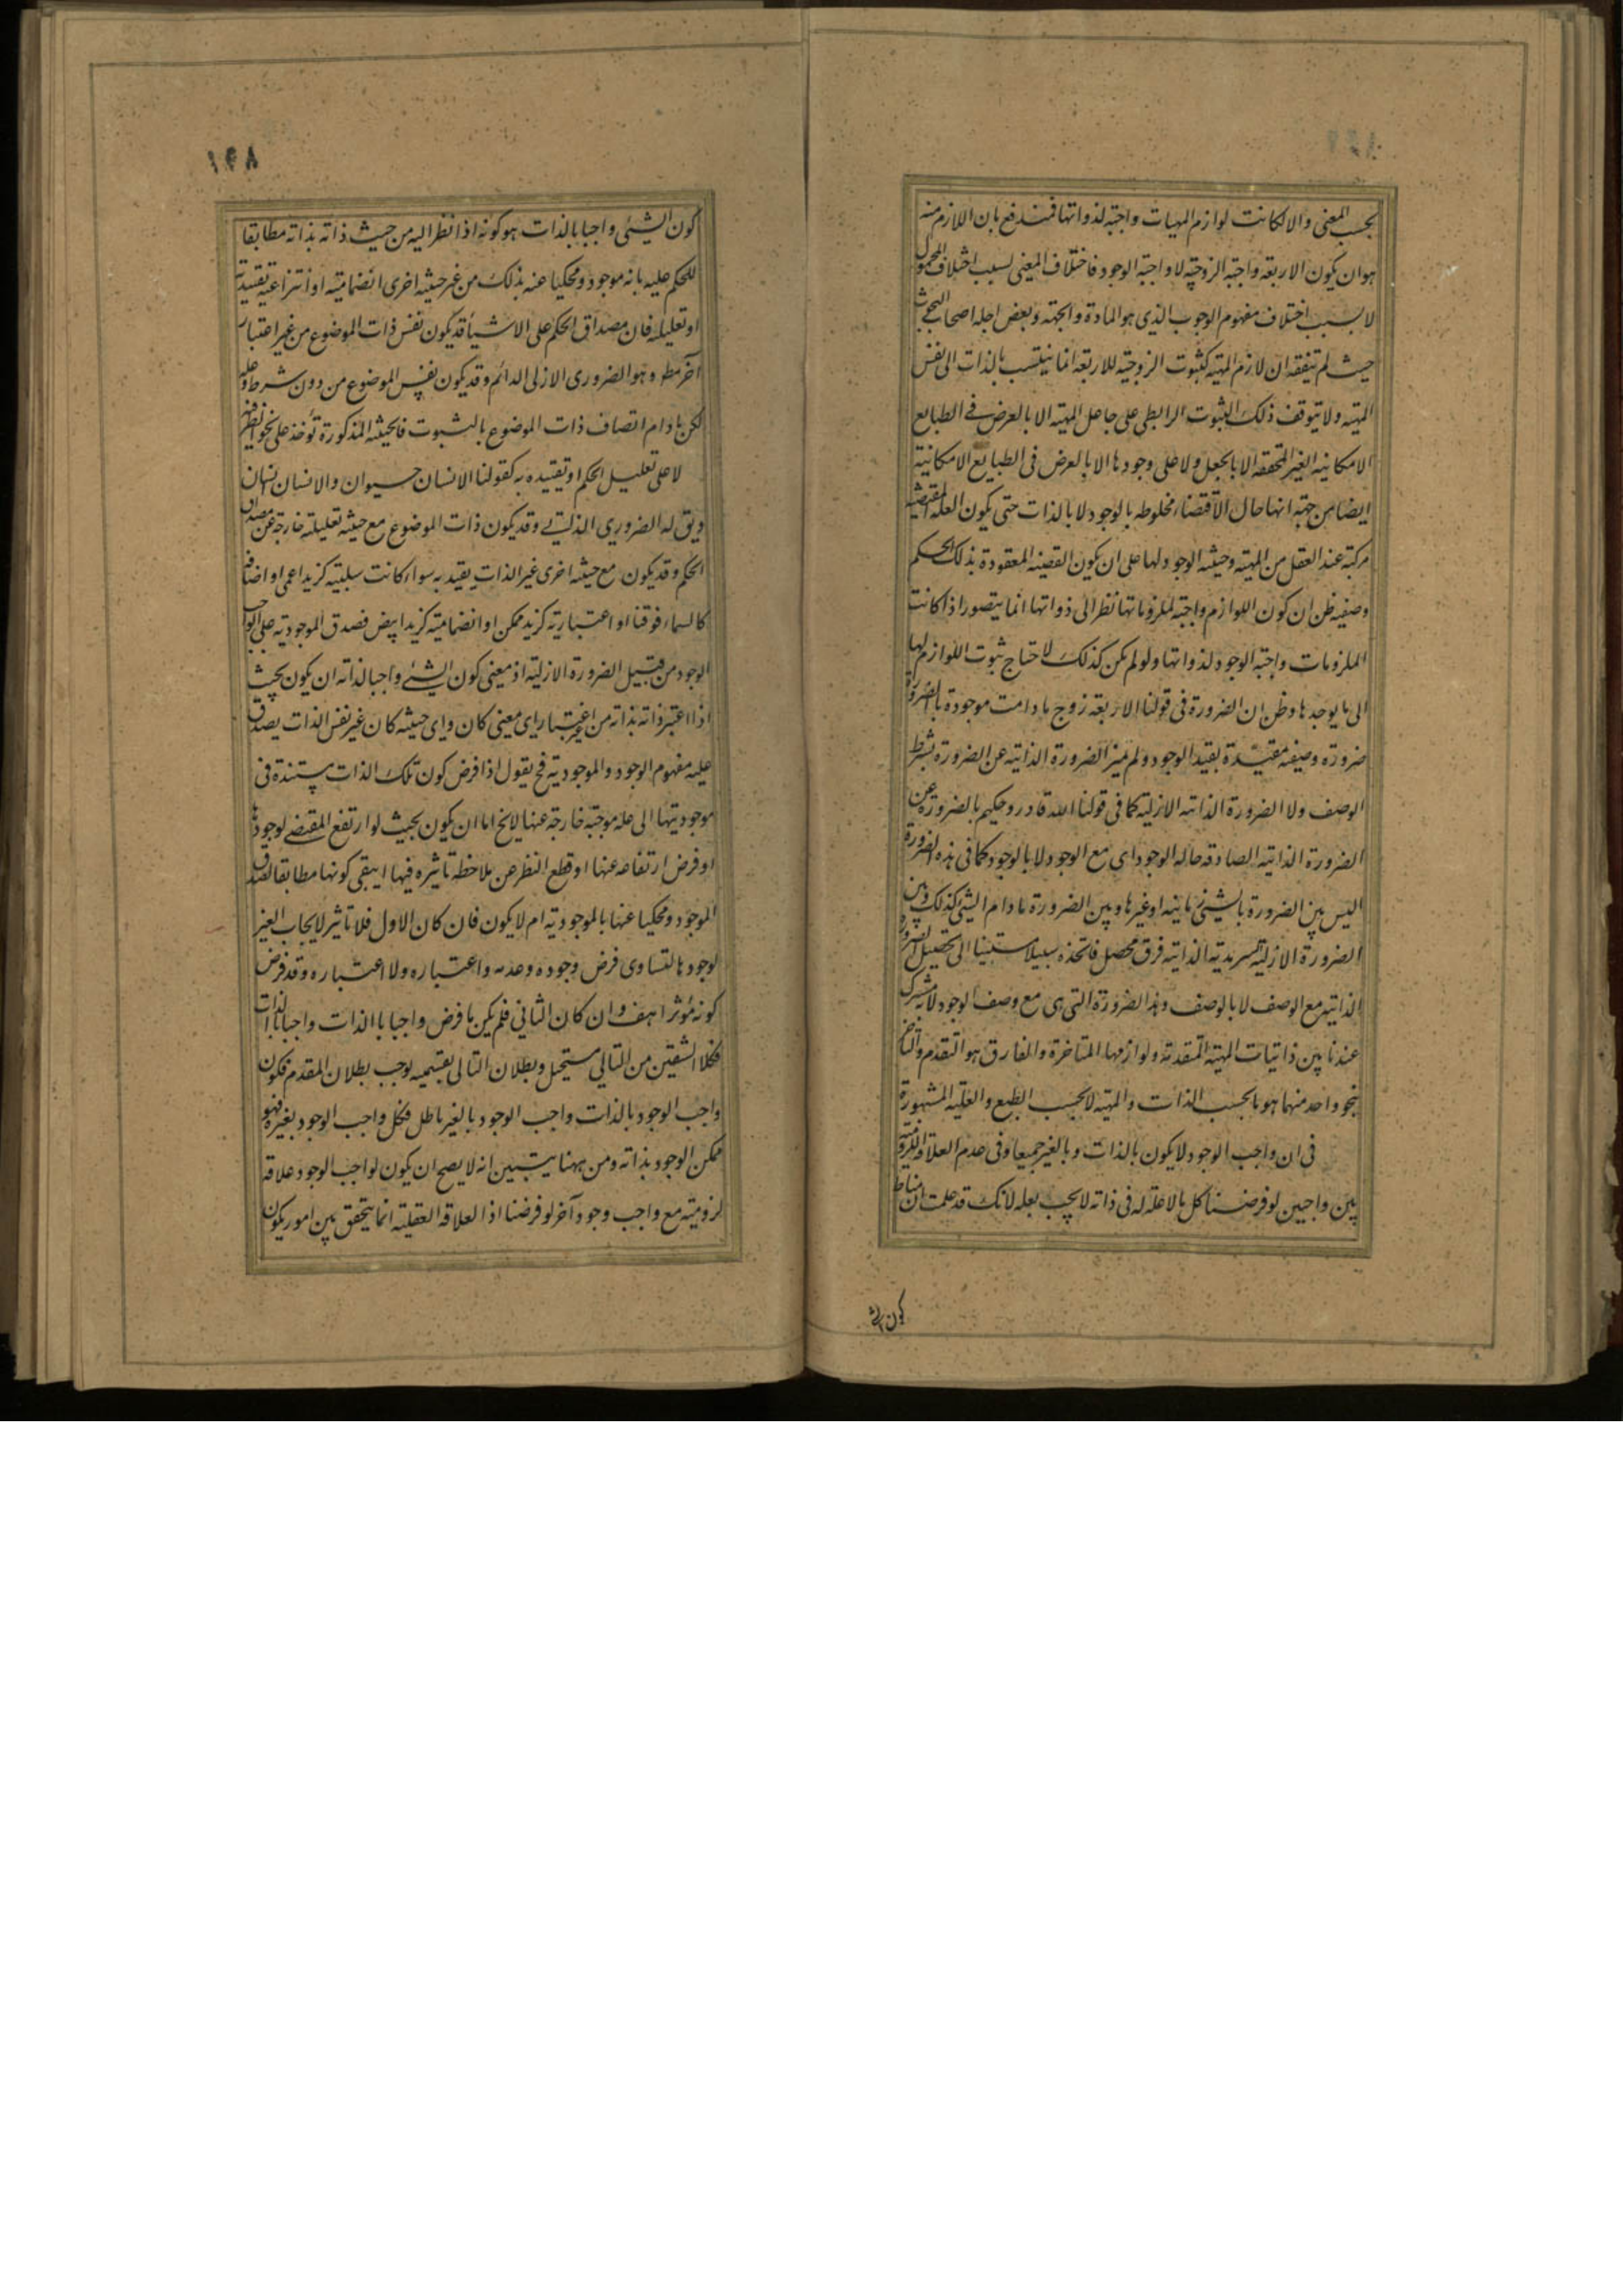 بحسب المعنى والا لكانت لوازم المهيات واجبة لذواتها فمندفع بان اللازم منه
هو ان يكون الاربعة واجبة الزوجية لا واجبة الوجود فاختلاف المعنى بسبب اختلاف المحمول
لا بسبب اختلاف مفهوم الوجوب الذي هو المادة والجهة وبعض اجلة اصحاب البحث
حيث لم يتفقه ان لازم المهية كثبوت الزوجية للاربعة انما ينتسب بالذات الى نفس
المهية ولا يتوقف ذلك الثبوت الرابطي على جاعل المهية الا بالعرض في الطبايع
الامكانية الغير المتحققة الا بالجعل ولا على وجودها الا بالعرض في الطبايع الامكانية
ايضا من جهة انها حال الاقتضاء مخلوطة بالوجود لا بالذات حتى يكون العلة المقتضية
مركبة عند العقل من المهية وحيثية الوجود لها على ان يكون القضية المعقودة بذلك الحكم
وصفية ظن ان كون اللوازم واجبة لملزوماتها نظرا الى ذواتها انما يتصور اذا كانت
الملزومات واجبة الوجود لذواتها ولو لم يكن كذلك لاحتاج ثبوت اللوازم لها
الى ما يوجدها وظن ان الضرورة في قولنا الاربعة زوج ما دامت موجودة بالضرورة
ضرورة وصفية مقيدة بقيد الوجود ولم يميز الضرورة الذاتية عن الضرورة بشرط
الوصف ولا الضرورة الذاتية الازلية كما في قولنا الله قادر وحكيم بالضرورة عن
الضرورة الذاتية الصادقة حالة الوجود اي مع الوجود لا بالوجود كما في هذه الضرورة
اليس بين الضرورة بالشيء ذاتية او غيرها وبين الضرورة ما دام الشيء كذلك وبين
الضرورة الازلية السرمدية الذاتية فرق محصل فاتخذه سبيلا مستبينا الى تحصيل الضرورة
الذاتية مع الوصف لا بالوصف وهذا الضرورة التي هي مع وصف الوجود لا به مشترك
عندنا بين ذاتيات المهية المتقدمة ولوازمها المتاخرة والمفارق هو التقدم والتاخر
نحو واحد منهما هو ما بحسب الذات والمهية لا بحسب الطبع والعلية المشهورة
في ان واجب الوجود لا يكون بالذات وبالغير جميعا وفي عدم العلاقة اللزومية
بين واجبين لو فرضنا كل ما لا علة له في ذاته لا يجب بعلة لانك قد علمت ان مناط
كون الشئ
١٩٨
كون الشيئ واجبا بالذات هو كونه اذا نظر اليه من حيث ذاته بذاته مطابقا
للحكم عليه بانه موجود ومحكيا عنه بذلك من غير حيثية اخرى انضمامية او انتزاعية تقييدية
او تعليلية فان مصداق الحكم على الاشياء قد يكون نفس ذات الموضوع من غير اعتبار
آخر مط وهو الضروري الازلي الدائم وقد يكون نفس الموضوع من دون شرط وعلة
لكن ما دام اتصاف ذات الموضوع بالثبوت فالحيثية المذكورة تؤخذ على نحو الظرفية
لا على تعليل الحكم او تقييده به كقولنا الانسان حيوان والانسان انسان
ويق له الضروري الذاتي وقد يكون ذات الموضوع مع حيثية تعليلية خارجة عن مصداق
الحكم وقد يكون مع حيثية اخرى غير الذات يقيد به سواء كانت سلبية كزيد اعمى او اضافية
كالسماء فوقنا او اعتبارية كزيد ممكن او انضمامية كزيد ابيض فصدق الموجودية على الواجب
الوجود من قبيل الضرورة الازلية اذ معنى كون الشئ واجبا لذاته ان يكون بحيث
اذا اعتبر ذاته بذاته من غير اعتبار اي معنى كان واي حيثية كان غير نفس الذات يصدق
عليه مفهوم الوجود والموجودية فح يقول اذا فرض كون تلك الذات مستندة في
موجوديتها الى علة موجبة خارجة عنها لا يخ اما ان يكون بحيث لو ارتفع المقتضي لوجودها
او فرض ارتفاعه عنها او قطع النظر عن ملاحظة تاثيره فيها ايبقى كونها مطابقا لصدق
الموجود ومحكيا عنها بالموجودية ام لا يكون فان كان الاول فلا تاثير لايجاب الغير
لوجودها لتساوي فرض وجوده وعدمه واعتباره ولا اعتباره وقد فرض
كونه مؤثرا هف وان كان الثاني فلم يكن ما فرض واجبا بالذات واجبا بالذات
فكلا الشقين من التالي مستحيل وبطلان التالي بقسميه يوجب بطلان المقدم فكون
واجب الوجود بالذات واجب الوجود بالغير باطل فكل واجب الوجود بغيره فهو
ممكن الوجود بذاته ومن ههنا يتبين انه لا يصح ان يكون لواجب الوجود علاقة
لزومية مع واجب وجود آخر لو فرضنا اذ العلاقة العقلية انما يتحقق بين امور يكون